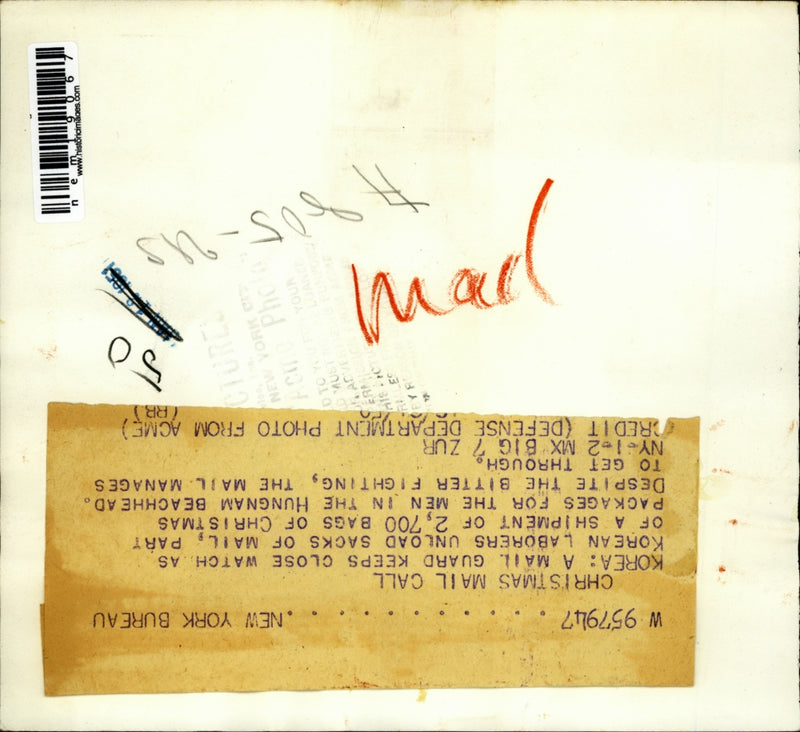 W 957947 . . . . . . . . . . . . NEW YORK BUREAU
CHRISTMAS MAIL CALL
KOREA: A MAIL GUARD KEEPS CLOSE WATCH AS
KOREAN LABORERS UNLOAD SACKS OF MAIL, PART
OF A SHIPMENT OF 2,700 BAGS OF CHRISTMAS
PACKAGES FOR THE MEN IN THE HUNGNAM BEACHHEAD.
DESPITE THE BITTER FIGHTING, THE MAIL MANAGES
TO GET THROUGH.
NY-1-2 MX BIG 7 ZUR
CREDIT (DEFENSE DEPARTMENT PHOTO FROM ACME)
(BB)
mad
nem19067
www.historicimages.com
NEW YORK CITY